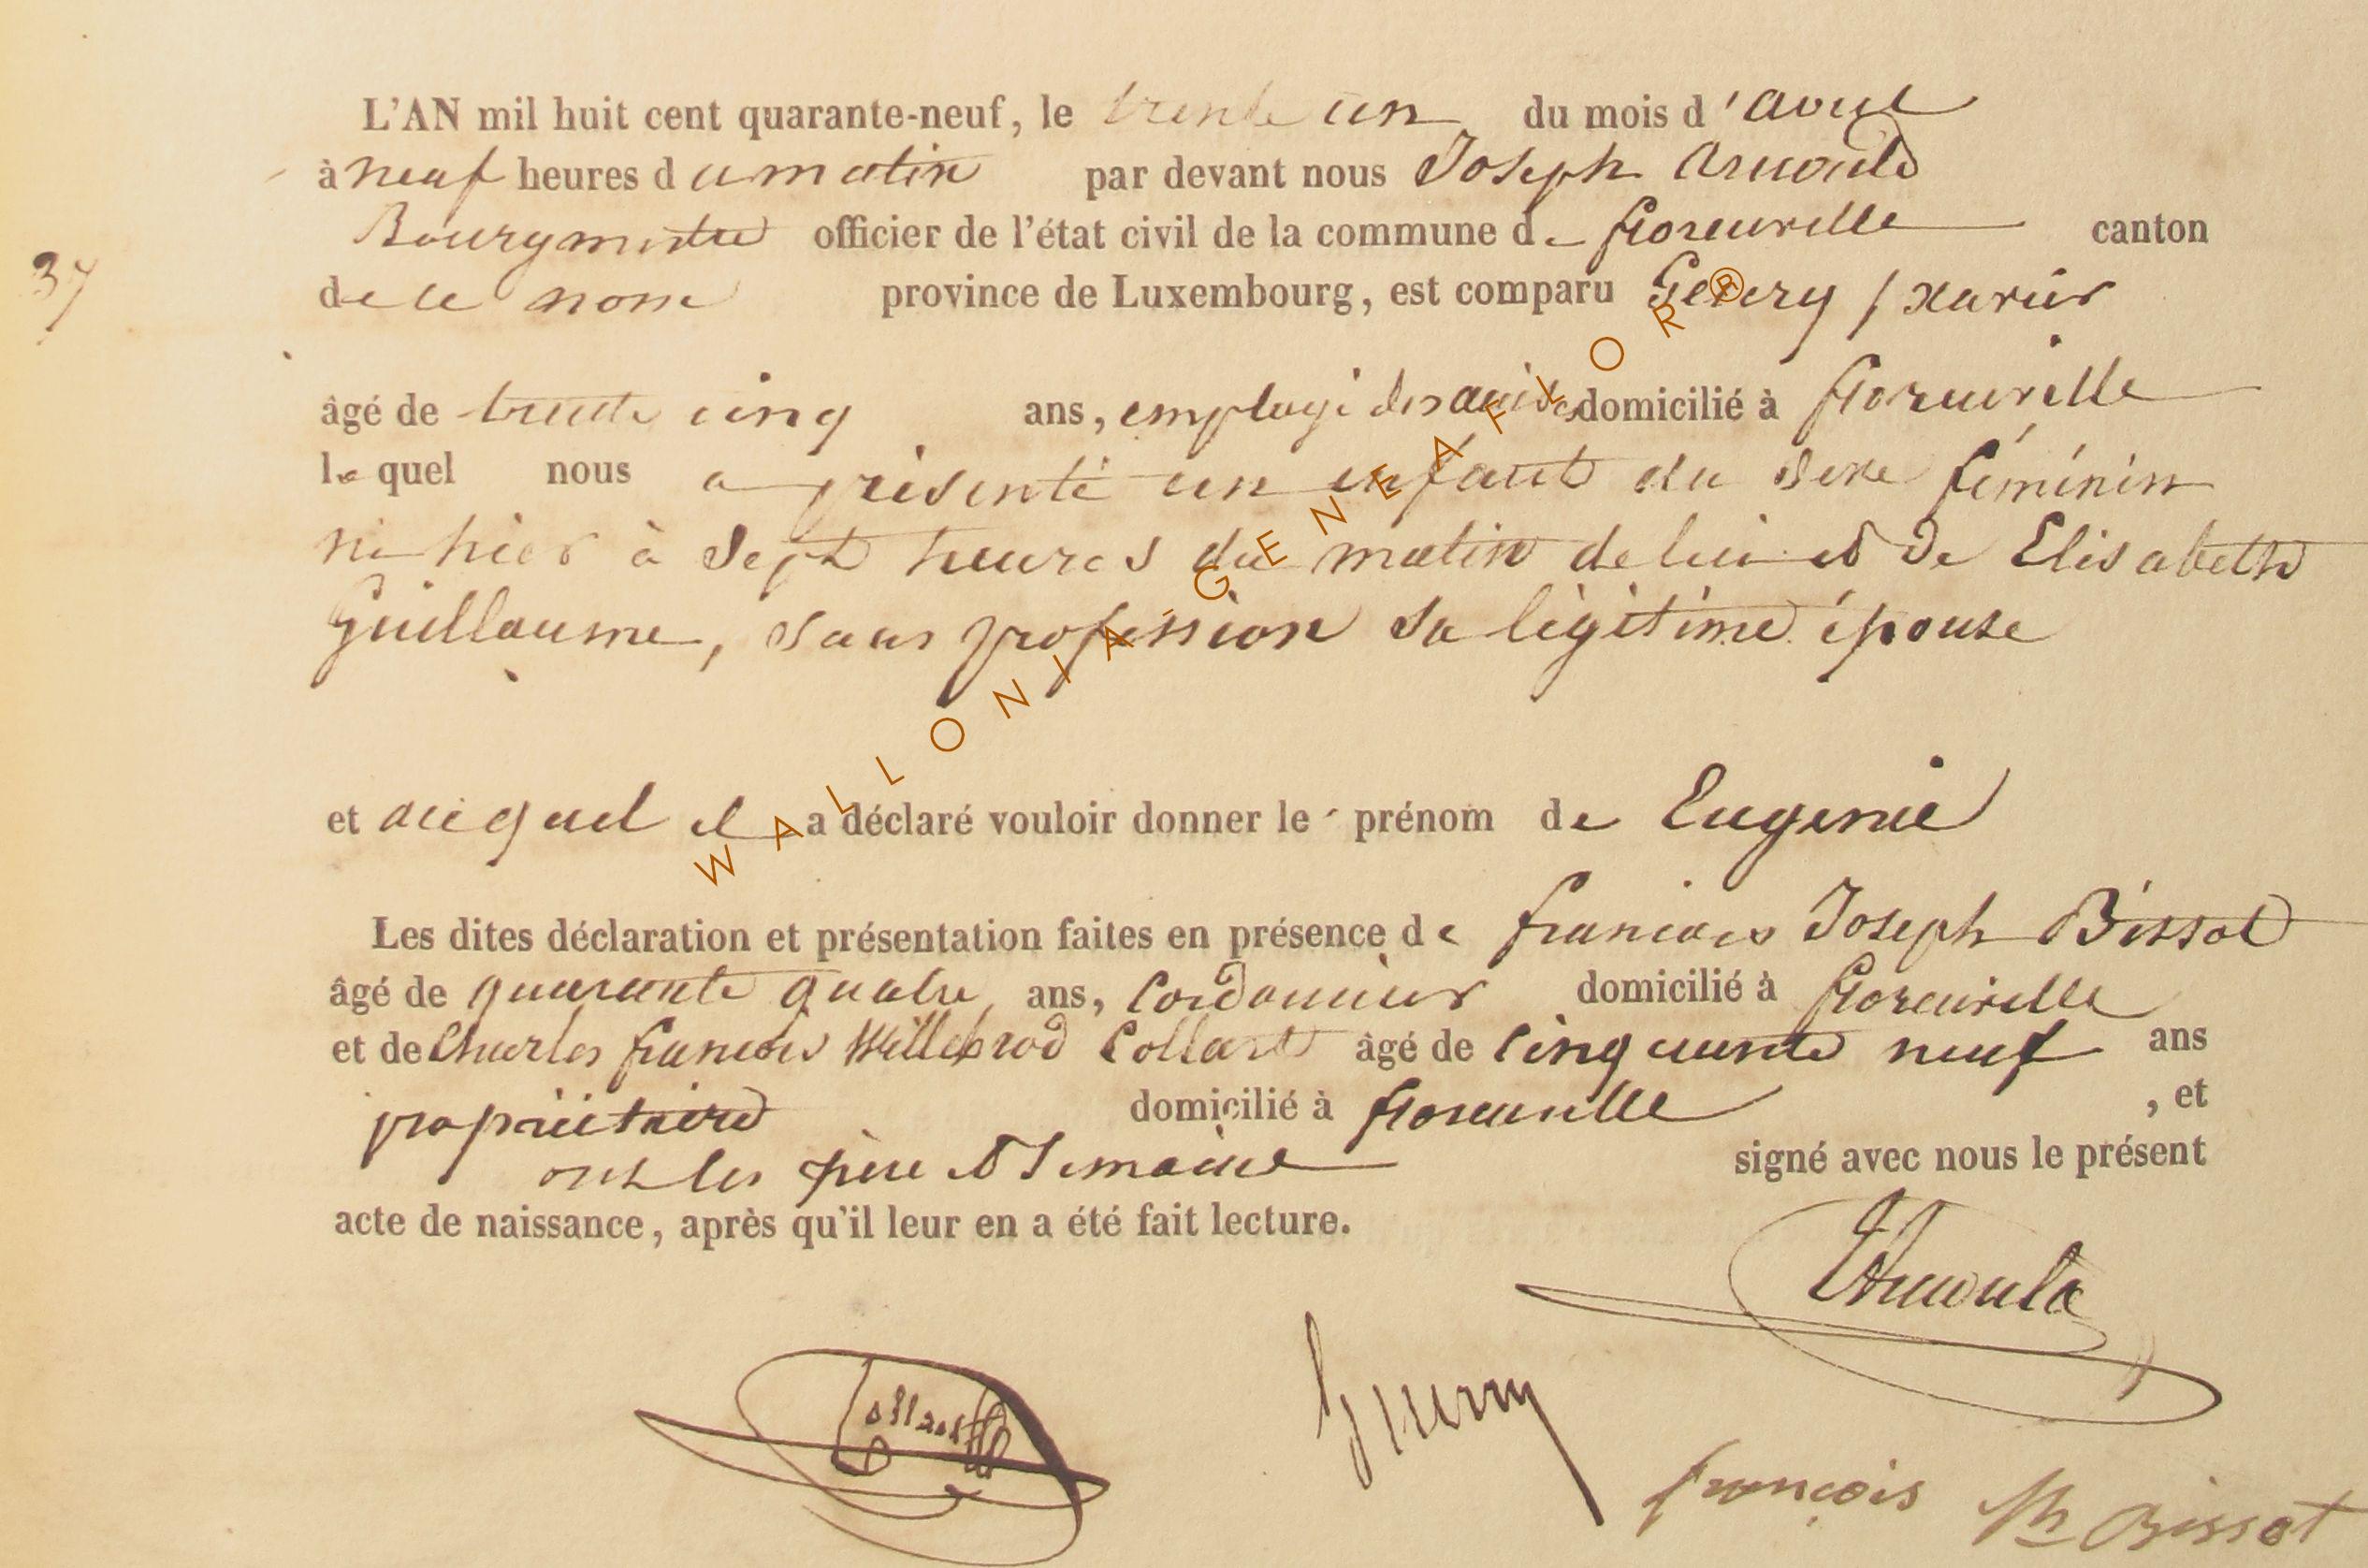 L'AN mil huit cent quarante-neuf, le trente un du mois d'avril
à neuf heures du matin par devant nous Joseph Arnould
Bourgmestre officier de l'état civil de la commune de florenville canton
de ce nom province de Luxembourg, est comparu Xavier
37
âgé de trente cinq ans, employé des domicilié à florenville
lequel nous a présenté un enfant du sexe féminin
né hier à sept heures du matin de lui et de Elisabeth
Guillaume, sans profession sa légitime épouse
et auquel il a déclaré vouloir donner le prénom de Eugenie
Les dites déclaration et présentation faites en présence de francois Joseph Bissot
âgé de quarante quatre ans, Cordonnier domicilié à florenville
et de Charles francois Willebrod Collart âgé de cinquante neuf ans
propriétaire domicilié à florenville , et
ont les père et témoins signé avec nous le présent
acte de naissance, après qu'il leur en a été fait lecture.
Arnould
Collart
françois Bissot
WALLONIA-GENEAFLOR®